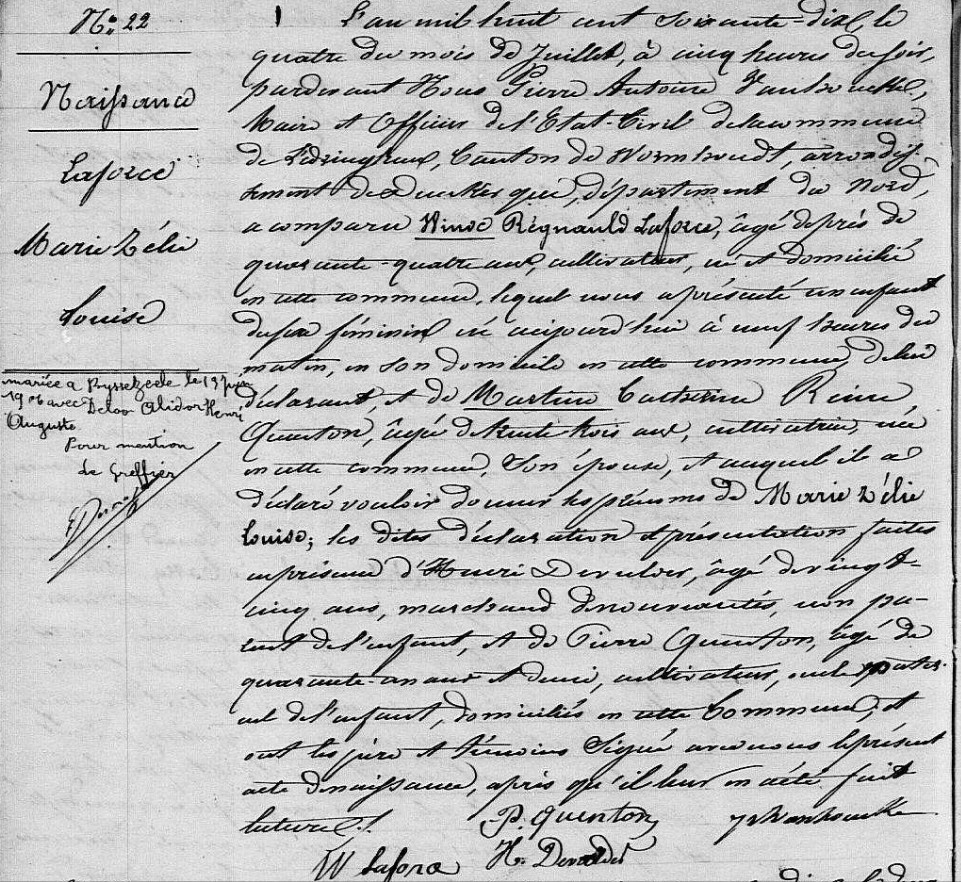 No: 22
Naissance
Laforce
Marie Zélie
Louise
mariée a Rysselzeele le 13 juin
1906 avec Deloo Alidor Henri
Auguste
Pour mention
de Greffier
L'an mil huit cent soixante-dix, le
quatre du mois de Juillet, à cinq heures du soir,
pardevant Nous Pierre Antoine
Maire et Officier de l'Etat-Civil de la commune
de Ledringhem, Canton de Wormhoudt, arrondis-
sement de Dunkerque, département du Nord,
a comparu Winoc Régnauld Laforce, âgé de près de
quarante-quatre ans, cultivateur, né et domicilié
en cette commune, lequel nous a présenté un enfant
du sexe féminin né aujourd'hui à neuf heures du
matin, en son domicile en cette commune, de lui
déclarant, et de Martine Catherine Reine
Quenton, âgée de trente trois ans, cultivatrice, née
en cette commune, Son épouse, et auquel il a
déclaré vouloir donner les prénoms de Marie Zélie
Louise; les dites déclaration et présentation faites
en présence d'Henri Devulder, âgé de vingt-
cinq ans, marchand de nouveautés, non pa-
rent de l'enfant, et de Pierre Quenton, âgé de
quarante-un ans et demi, cultivateur, oncle mater-
nel de l'enfant, domiciliés en cette Commune; et
ont les père et témoins Signé avec nous le présent
acte de naissance, après qu'il leur en a été fait
lecture./.
P. Quenton
W Laforce H. Devulder